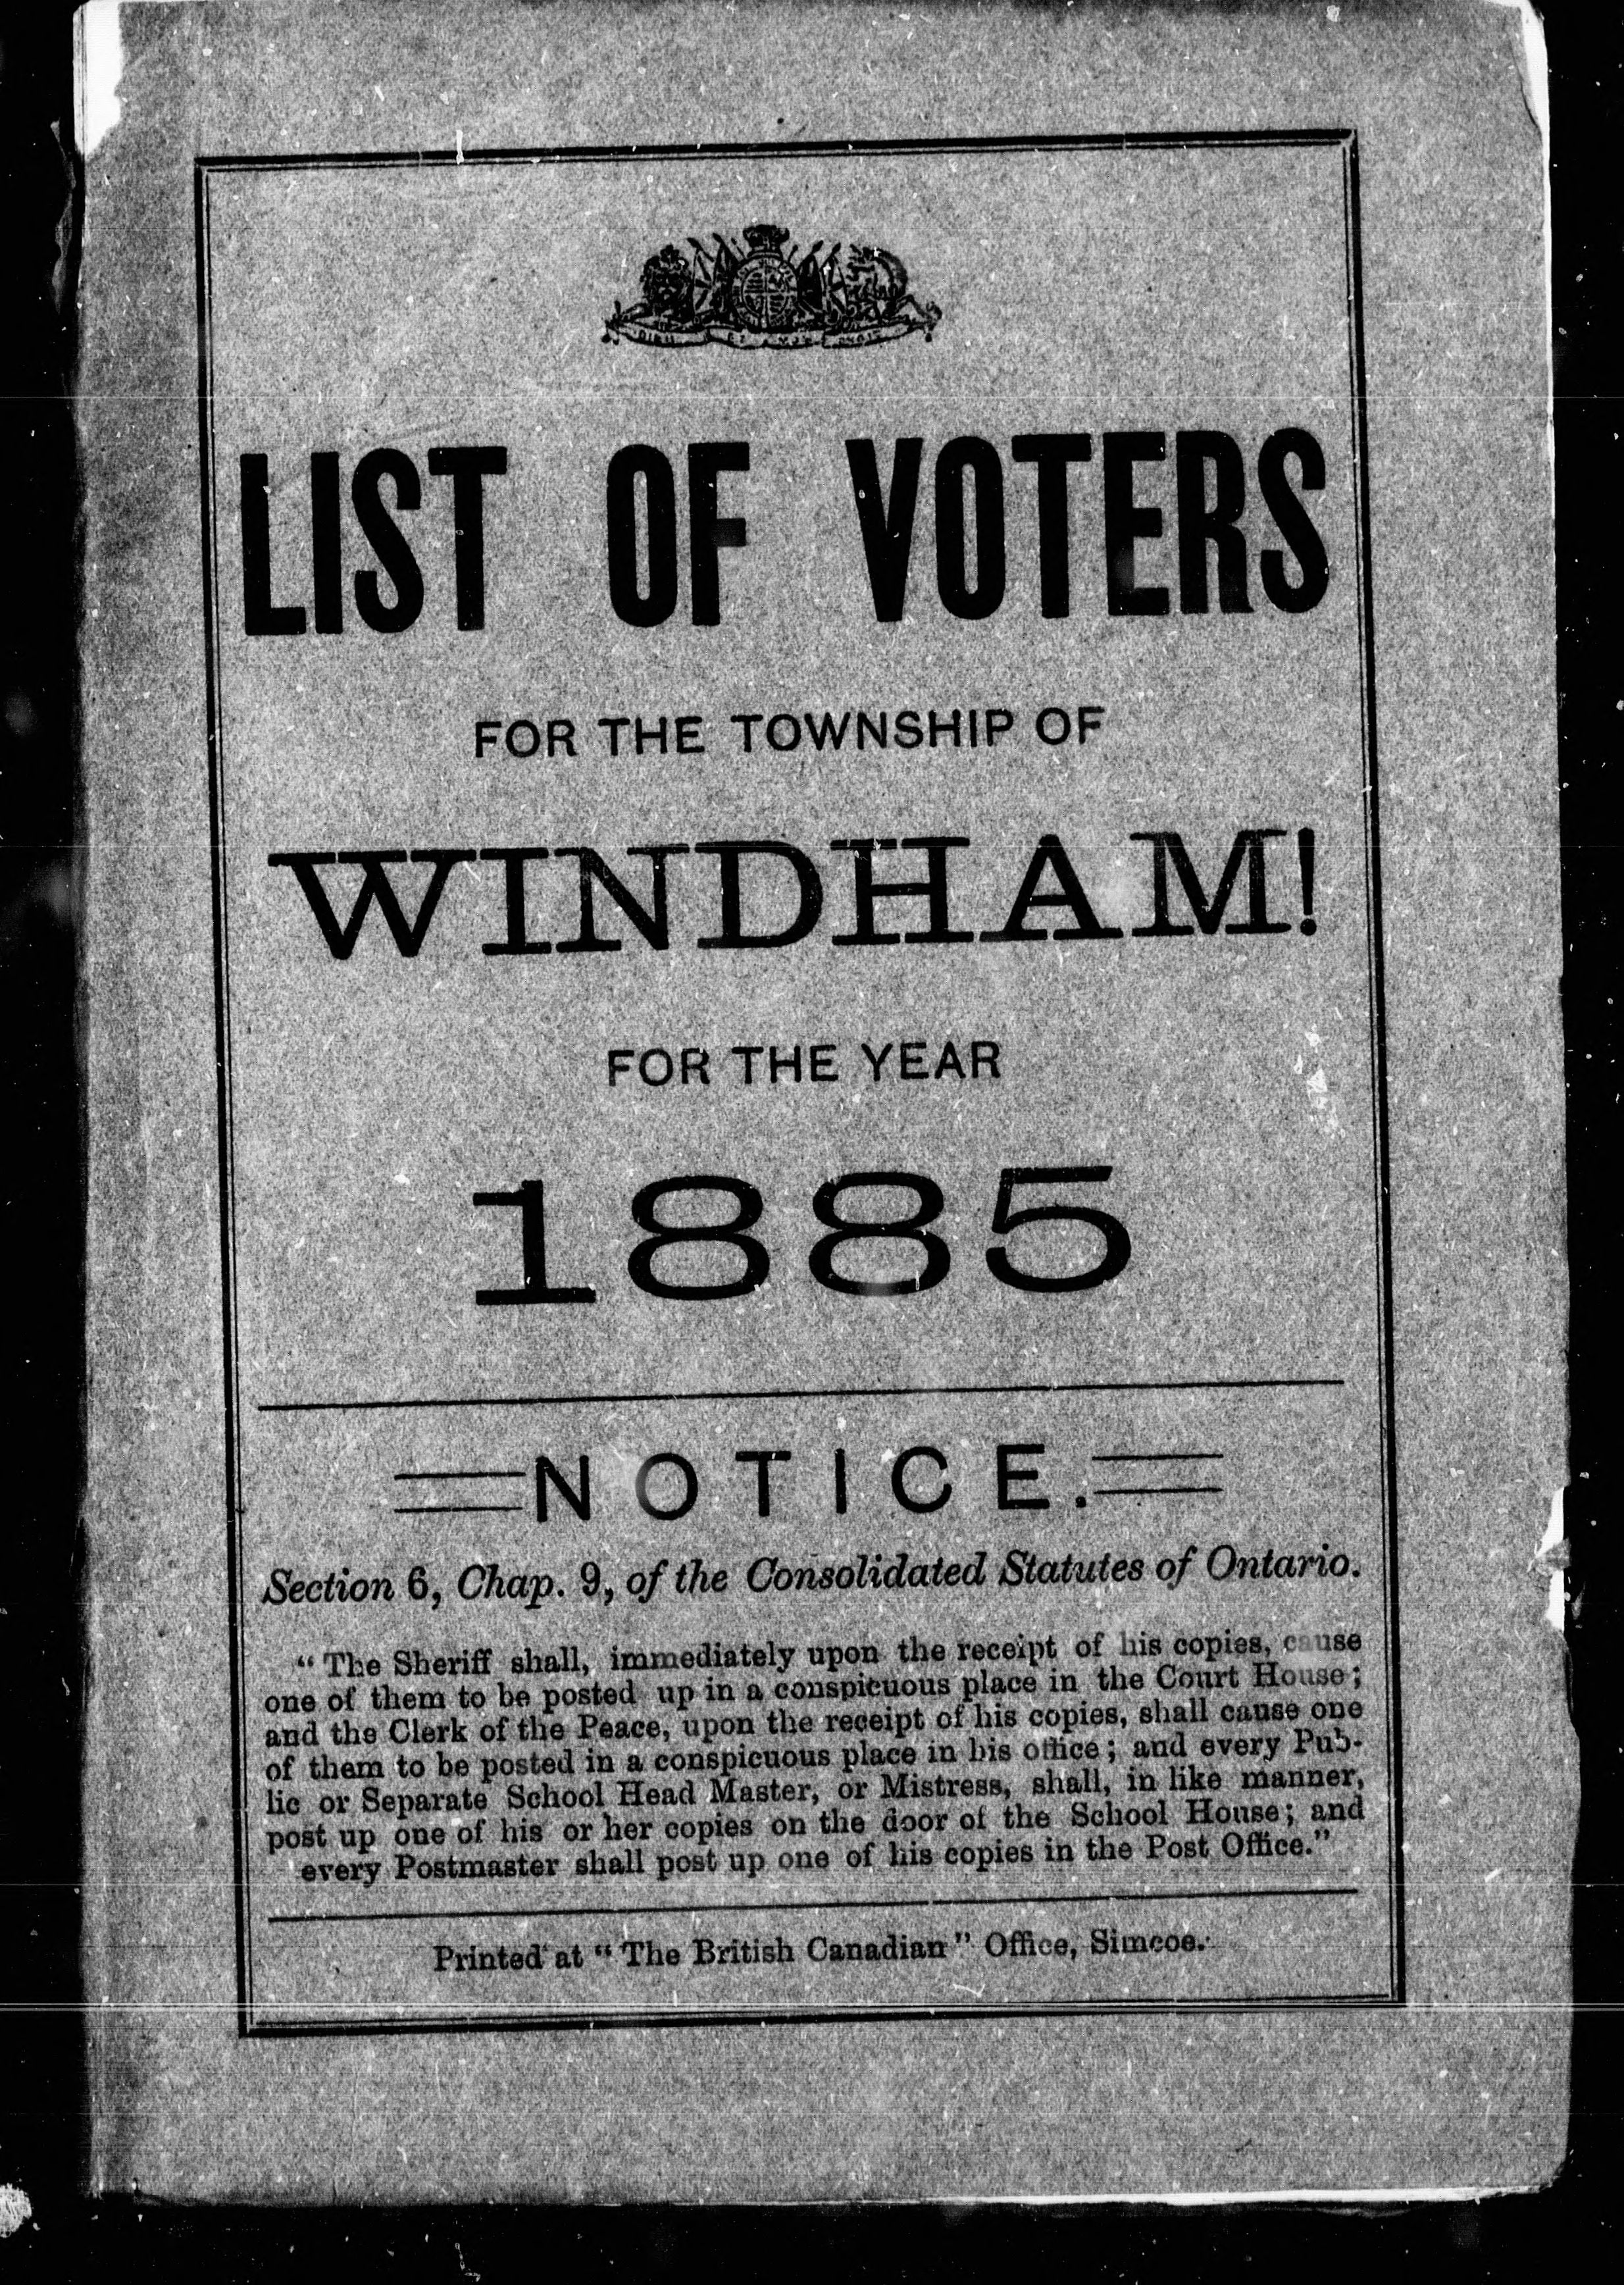 LIST OF VOTERS
FOR THE TOWNSHIP OF
WINDHAM!
FOR THE YEAR
1885
NOTICE.
Section 6, Chap. 9, of the Consolidated Statutes of Ontario.
“The Sheriff shall, immediately upon the receipt of his copies, cause
one of them to be posted up in a conspicuous place in the Court House;
and the Clerk of the Peace, upon the receipt of his copies, shall cause one
of them to be posted in a conspicuous place in his office; and every Pub-
lic or Separate School Head Master, or Mistress, shall, in like manner,
post up one of his or her copies on the door of the School House; and
every Postmaster shall post up one of his copies in the Post Office.”
Printed at “The British Canadian” Office, Simcoe.